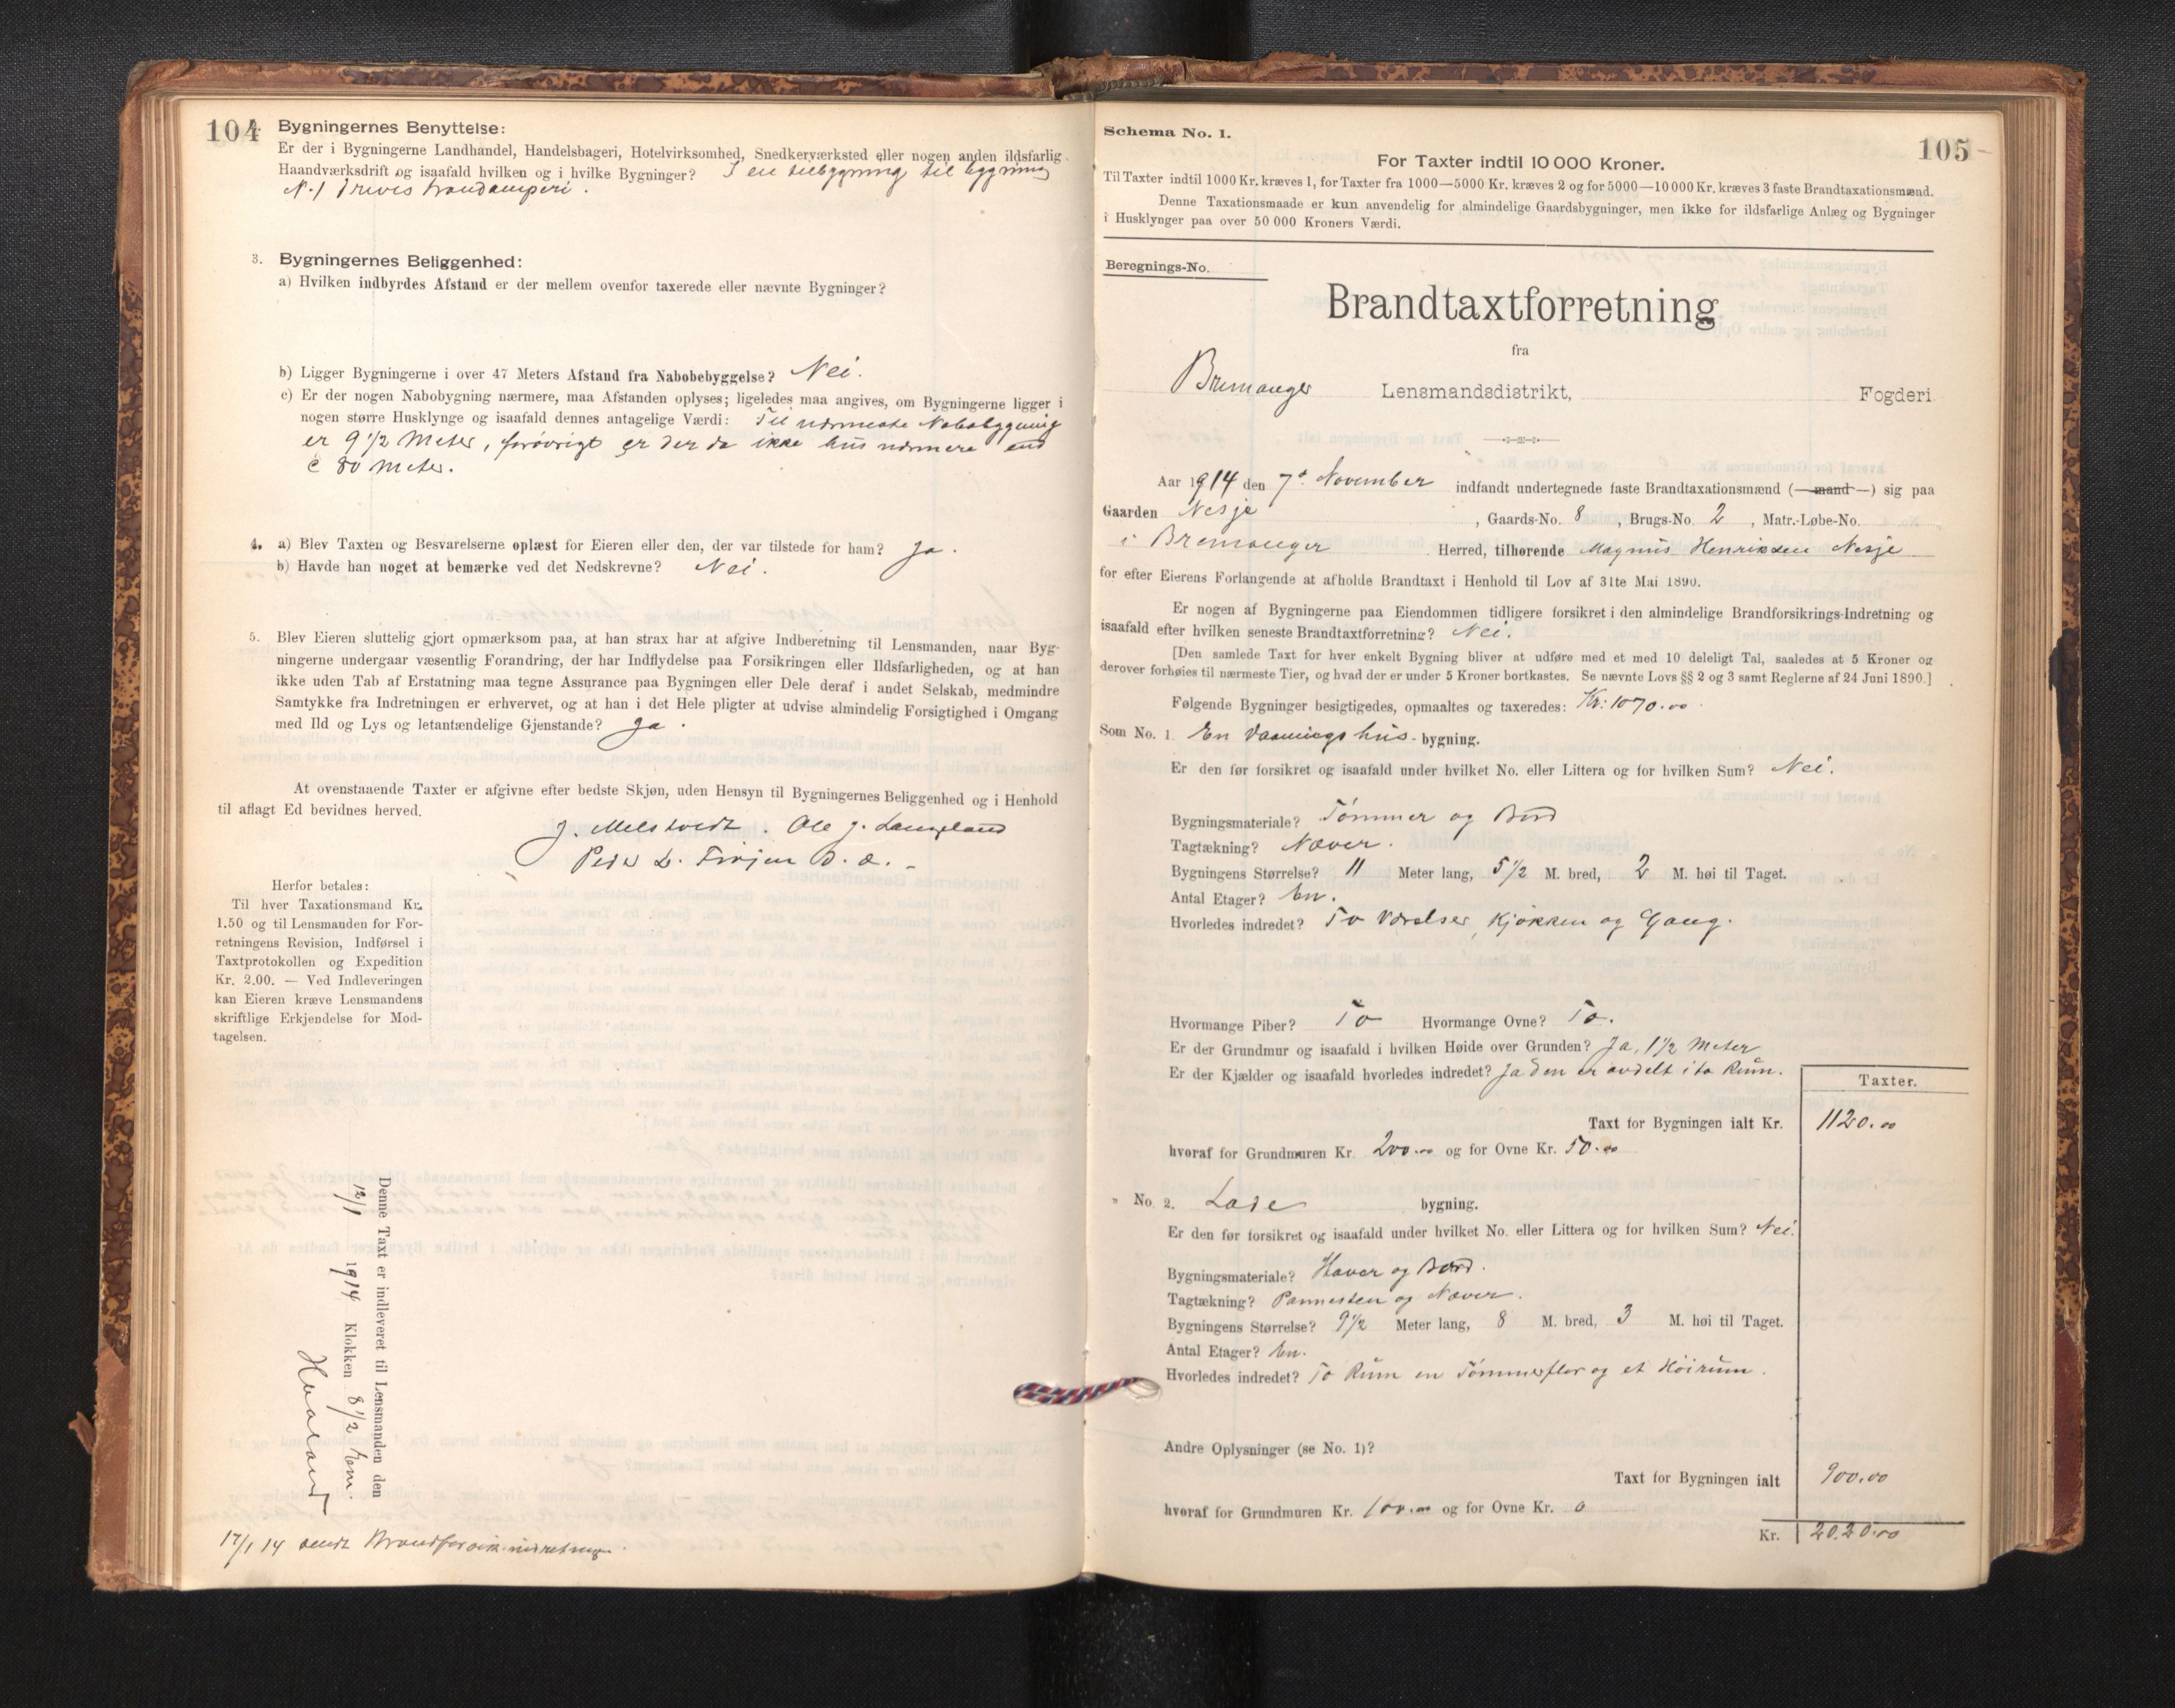 104
2. Bygningernes Benyttelse:
Er der i Bygningerne Landhandel, Handelsbageri, Hotelvirksomhed, Snedkerværksted eller nogen anden ildsfarlig
Haandværksdrift og isaafald hvilken og i hvilke Bygninger? I en tilbygning til bygning
N. 1 drives trandamperi.
3. Bygningernes Beliggenhed:
a) Hvilken indbyrdes Afstand er der mellem ovenfor taxerede eller nævnte Bygninger?
b) Ligger Bygningerne i over 47 Meters Afstand fra Nabobebyggelse? Nei.
c) Er der nogen Nabobygning nærmere, maa Afstanden oplyses; ligeledes maa angives, om Bygningerne ligger i
nogen større Husklynge og isaafald dennes antagelige Værdi: Til nærmeste Nabobygning
er 9 1/2 Meter, forøvrigt er der da ikke hus nærmere end
c 80 meter.
4. a) Blev Taxten og Besvarelserne oplæst for Eieren eller den, der var tilstede for ham? Ja.
b) Havde han noget at bemærke ved det Nedskrevne? Nei.
5. Blev Eieren sluttelig gjort opmærksom paa, at han strax har at afgive Indberetning til Lensmanden, naar Byg-
ningerne undergaar væsentlig Forandring, der har Indflydelse paa Forsikringen eller Ildsfarligheden, og at han
ikke uden Tab af Erstatning maa tegne Assurance paa Bygningen eller Dele deraf i andet Selskab, medmindre
Samtykke fra Indretningen er erhvervet, og at han i det Hele pligter at udvise almindelig Forsigtighed i Omgang
med Ild og Lys og letantændelige Gjenstande? Ja.
At ovenstaaende Taxter er afgivne efter bedste Skjøn, uden Hensyn til Bygningernes Beliggenhed og i Henhold
til aflagt Ed bevidnes herved.
J. Melstvedt. Ole J. Langeland
Peder L.
Herfor betales:
Til hver Taxationsmand Kr.
1.50 og til Lensmanden for For-
retningens Revision, Indførsel i
Taxtprotokollen og Expedition
Kr. 2.00. — Ved Indleveringen
kan Eieren kræve Lensmandens
skriftlige Erkjendelse for Mod-
tagelsen.
Denne Taxt er indleveret til Lensmanden den
12/1 1914 Klokken 8 1/2 em.
17/1 14 sendt Brandforsik.indretningen.
Schema No. 1.
105
For Taxter indtil 10 000 Kroner.
Til Taxter indtil 1000 Kr. kræves 1, for Taxter fra 1000—5000 Kr. kræves 2 og for 5000—10 000 Kr. kræves 3 faste Brandtaxationsmænd.
Denne Taxationsmaade er kun anvendelig for almindelige Gaardsbygninger, men ikke for ildsfarlige Anlæg og Bygninger
i Husklynger paa over 50 000 Kroners Værdi.
Beregnings-No.
Brandtaxtforretning
fra
Bremanger Lensmandsdistrikt, Fogderi
Aar 1914 den 7de November indfandt undertegnede faste Brandtaxationsmænd (—mand—) sig paa
Gaarden Nesje, Gaards-No. 8, Brugs-No. 2, Matr.-Løbe-No.
i Bremanger Herred, tilhørende Magnus Henriksen Nesje
for efter Eierens Forlangende at afholde Brandtaxt i Henhold til Lov af 31te Mai 1890.
Er nogen af Bygningerne paa Eiendommen tidligere forsikret i den almindelige Brandforsikrings-Indretning og
isaafald efter hvilken seneste Brandtaxtforretning? Nei.
[Den samlede Taxt for hver enkelt Bygning bliver at udføre med et med 10 deleligt Tal, saaledes at 5 Kroner og
derover forhøies til nærmeste Tier, og hvad der er under 5 Kroner bortkastes. Se nævnte Lovs §§ 2 og 3 samt Reglerne af 24 Juni 1890.]
Følgende Bygninger besigtigedes, opmaaltes og taxeredes: Kr: 1070.00
Som No. 1. En Vaanings hus- bygning.
Er den før forsikret og isaafald under hvilket No. eller Littera og for hvilken Sum? Nei.
Bygningsmateriale? Tømmer og Bord
Tagtækning? Næver.
Bygningens Størrelse? 11 Meter lang, 5 1/2 M. bred, 2 M. høi til Taget.
Antal Etager? En.
Hvorledes indredet? To Værelser, Kjøkken og Gang.
Hvormange Piber? To Hvormange Ovne? To.
Er der Grundmur og isaafald i hvilken Høide over Grunden? Ja, 1 1/2 Meter
Er der Kjælder og isaafald hvorledes indredet? Ja den er avdelt i to Rum.
Taxter.
Taxt for Bygningen ialt Kr. 1120.00
hvoraf for Grundmuren Kr. 200.00 og for Ovne Kr. 50.00
" No. 2. Lade bygning.
Er den før forsikret og isaafald under hvilket No. eller Littera og for hvilken Sum? Nei.
Bygningsmateriale? Staver og Bord.
Tagtækning? Pannesten og Næver.
Bygningens Størrelse? 9 1/2 Meter lang, 8 M. bred, 3 M. høi til Taget.
Antal Etager? En.
Hvorledes indredet? To Rum en Tømmerflor og et Høirum.
Andre Oplysninger (se No. 1)?
Taxt for Bygningen ialt 900.00
hvoraf for Grundmuren Kr. 100.00 og for Ovne Kr. 0
Kr. 2020.00